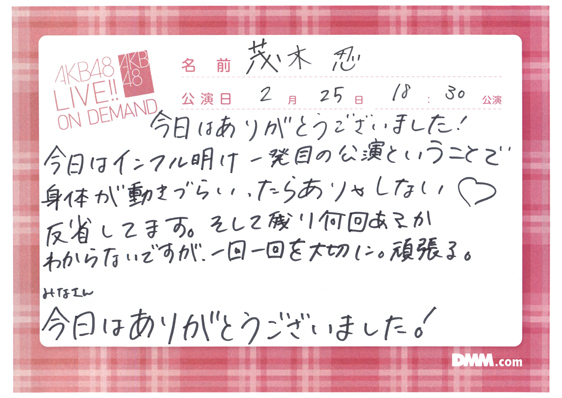 AKB48
LIVE!!
ON DEMAND
AKB
48
名前 茂木 忍
公演日 2月 25日 18:30 公演
今日はありがとうございました!
今日はインフル明け一発目の公演ということで
身体が動きづらい、たらありゃしない♡
反省してます。そして残り何回あるか
わからないですが、一回一回を大切に。頑張る。
みなさん
今日はありがとうございました。!
DMM.com